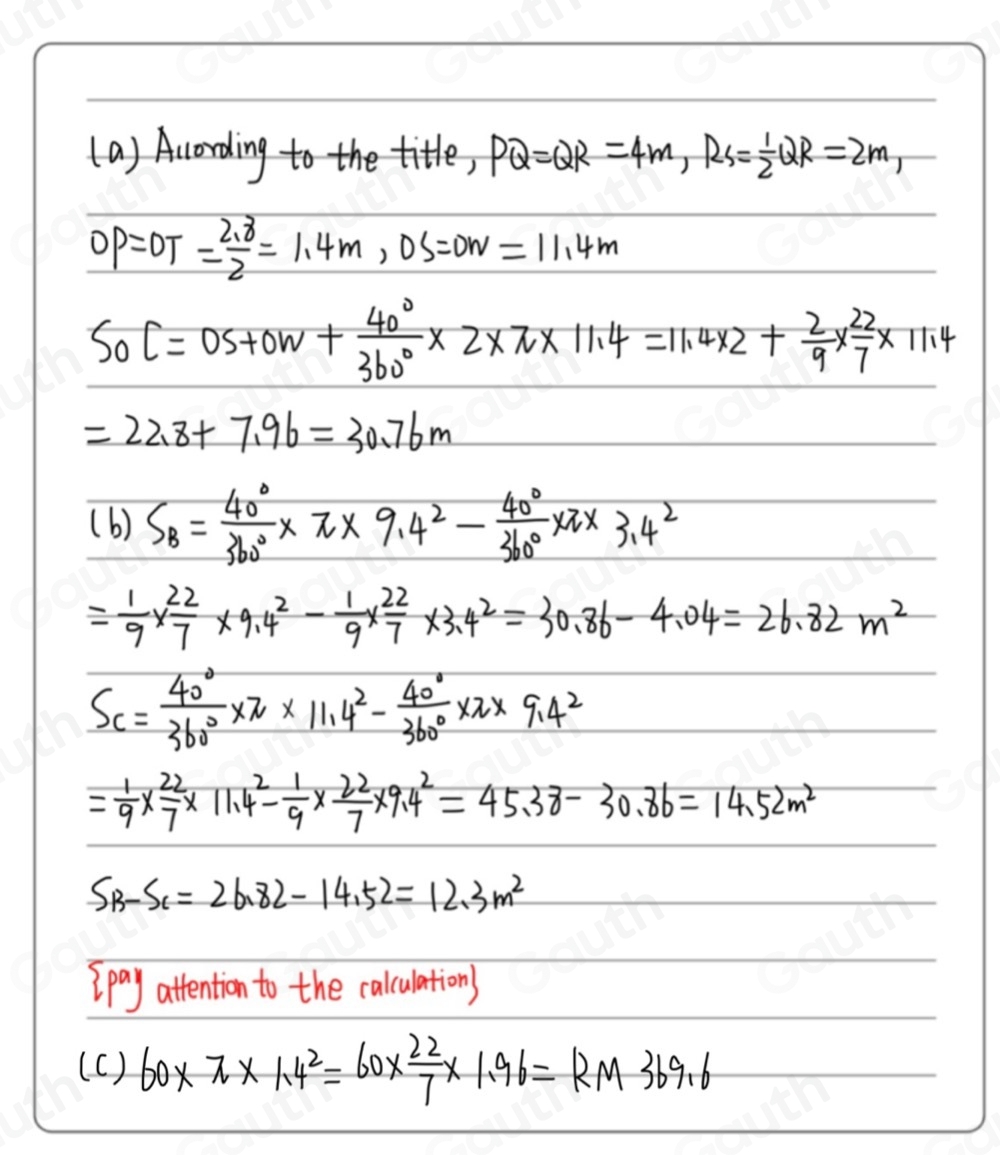 (a) According to the title, PQ=QR=4m, RS=½QR=2m,
OP=OT=2.8/2=1.4m, OS=OW=11.4m
So C=OS+OW+40°/360°×2×π×11.4=11.4×2+2/9×22/7×11.4
=22.8+7.96=30.76m
(b) S_B=40°/360°×π×9.4²-40°/360°×π×3.4²
=1/9×22/7×9.4²-1/9×22/7×3.4²=30.86-4.04=26.82 m²
S_C=40°/360°×π×11.4²-40°/360°×π×9.4²
=1/9×22/7×11.4²-1/9×22/7×9.4²=45.38-30.86=14.52m²
S_B-S_C=26.82-14.52=12.3m²
{pay attention to the calculation}
(C) 60×π×1.4²=60×22/7×1.96=RM 369.6